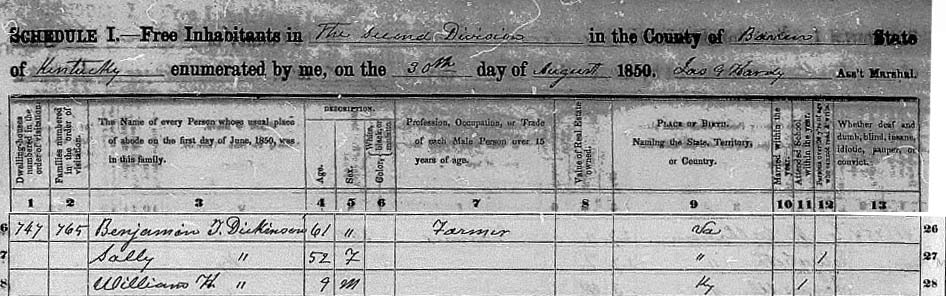 SCHEDULE I.—Free Inhabitants in The Second Division in the County of Barren State
of Kentucky enumerated by me, on the 30th day of August 1850. Jas G Hardy Ass't Marshal.
Dwelling-houses numbered in the order of visitation.
Families numbered in the order of visitation.
The Name of every Person whose usual place
of abode on the first day of June, 1850, was
in this family.
DESCRIPTION.
Age.
Sex.
Color, White, black, or mulatto.
Profession, Occupation, or Trade
of each Male Person over 15
years of age.
Value of Real Estate owned.
PLACE OF BIRTH.
Naming the State, Territory,
or Country.
Married within the year.
Attended School within the year.
Persons over 20 y'rs of age who cannot read & write.
Whether deaf and
dumb, blind, insane,
idiotic, pauper, or
convict.
1 2 3 4 5 6 7 8 9 10 11 12 13
6 747 765 Benjamin T. Dickinson 61 " Farmer Va 26
7 Sally " 52 F " 1 27
8 William H " 9 M Ky 1 28